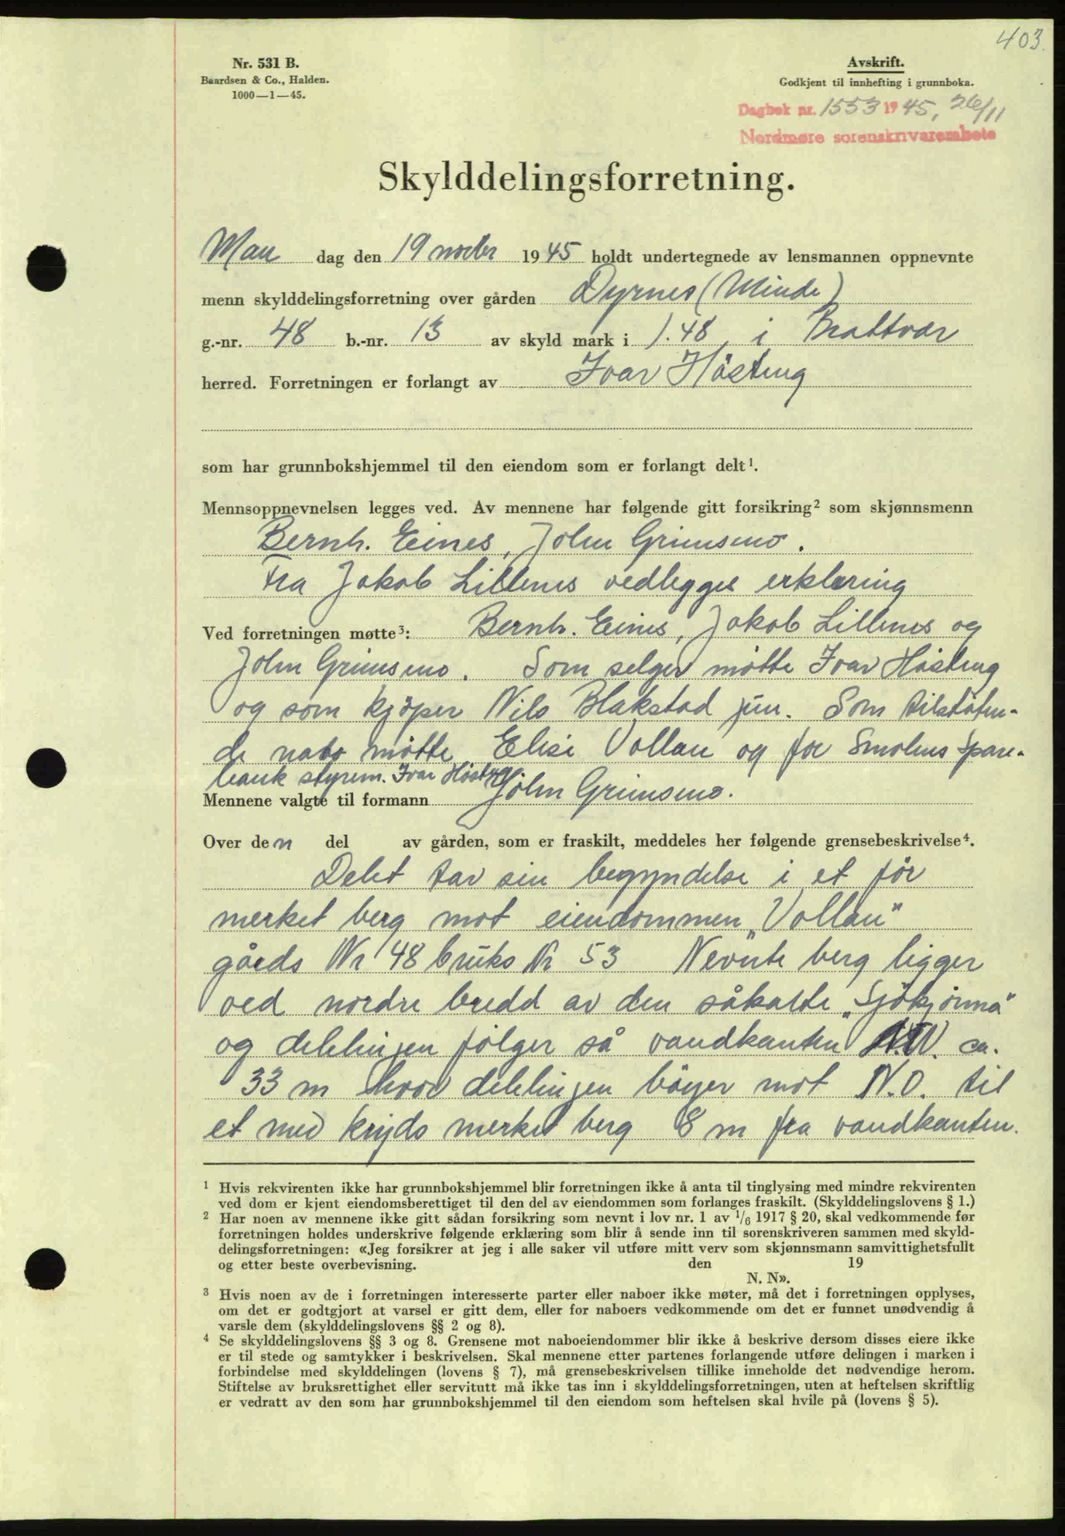 403.
Nr. 531 B.
Baardsen & Co., Halden.
1000—1—45.
Avskrift.
Godkjent til innhefting i grunnboka.
Dagbok nr. 1553 1945, 26/11
Nordmøre sorenskrivarembete
Skylddelingsforretning.
Man dag den 19 novbr 1945 holdt undertegnede av lensmannen oppnevnte
menn skylddelingsforretning over gården Dyrnes (Minde)
g.-nr. 48 b.-nr. 13 av skyld mark i 1.48 i Brattvær
herred. Forretningen er forlangt av Ivar Høsteng
som har grunnbokshjemmel til den eiendom som er forlangt delt¹.
Mennsoppnevnelsen legges ved. Av mennene har følgende gitt forsikring² som skjønnsmenn
Bernh. Eines, John Grimsmo.
Fra Jakob Lillenes vedlegges erklæring
Ved forretningen møtte³: Bernh. Eines, Jakob Lillenes og
John Grimsmo. Som selger møtte Ivar Høsteng
og som kjøper Nils Blakstad jun. Som tilstøten-
de nabo møtte Elise Vollan og for Smølens Spare-
bank styrem. Ivar Høsteng
Mennene valgte til formann John Grimsmo.
Over den del av gården, som er fraskilt, meddeles her følgende grensebeskrivelse⁴.
Delet tar sin begyndelse i et før
merket berg mot eiendommen „Vollan"
gårds Nr 48 bruks Nr 53 Nevnte berg ligger
ved nordre bredd av den såkalte „Sjøkjønna"
og delelinjen følger så vandkanten N.V. ca.
33 m hvor delelinjen bøyer mot N.O. til
et med kryds merket berg 8 m fra vandkanten.
¹ Hvis rekvirenten ikke har grunnbokshjemmel blir forretningen ikke å anta til tinglysing med mindre rekvirenten
ved dom er kjent eiendomsberettiget til den del av eiendommen som forlanges fraskilt. (Skylddelingslovens § 1.)
² Har noen av mennene ikke gitt sådan forsikring som nevnt i lov nr. 1 av 1/6 1917 § 20, skal vedkommende før
forretningen holdes underskrive følgende erklæring som blir å sende inn til sorenskriveren sammen med skyld-
delingsforretningen: «Jeg forsikrer at jeg i alle saker vil utføre mitt verv som skjønnsmann samvittighetsfullt
og etter beste overbevisning. den 19
N. N».
³ Hvis noen av de i forretningen interesserte parter eller naboer ikke møter, må det i forretningen opplyses,
om det er godtgjort at varsel er gitt dem, eller for naboers vedkommende om det er funnet unødvendig å
varsle dem (skylddelingslovens §§ 2 og 8).
⁴ Se skylddelingslovens §§ 3 og 8. Grensene mot naboeiendommer blir ikke å beskrive dersom disses eiere ikke
er til stede og samtykker i beskrivelsen. Skal mennene etter partenes forlangende utføre delingen i marken i
forbindelse med skylddelingen (lovens § 7), må grensebeskrivelsen tillike inneholde det nødvendige herom.
Stiftelse av bruksrettighet eller servitutt må ikke tas inn i skylddelingsforretningen, uten at heftelsen skriftlig
er vedratt av den som har grunnbokshjemmel til den eiendom som heftelsen skal hvile på (lovens § 5).